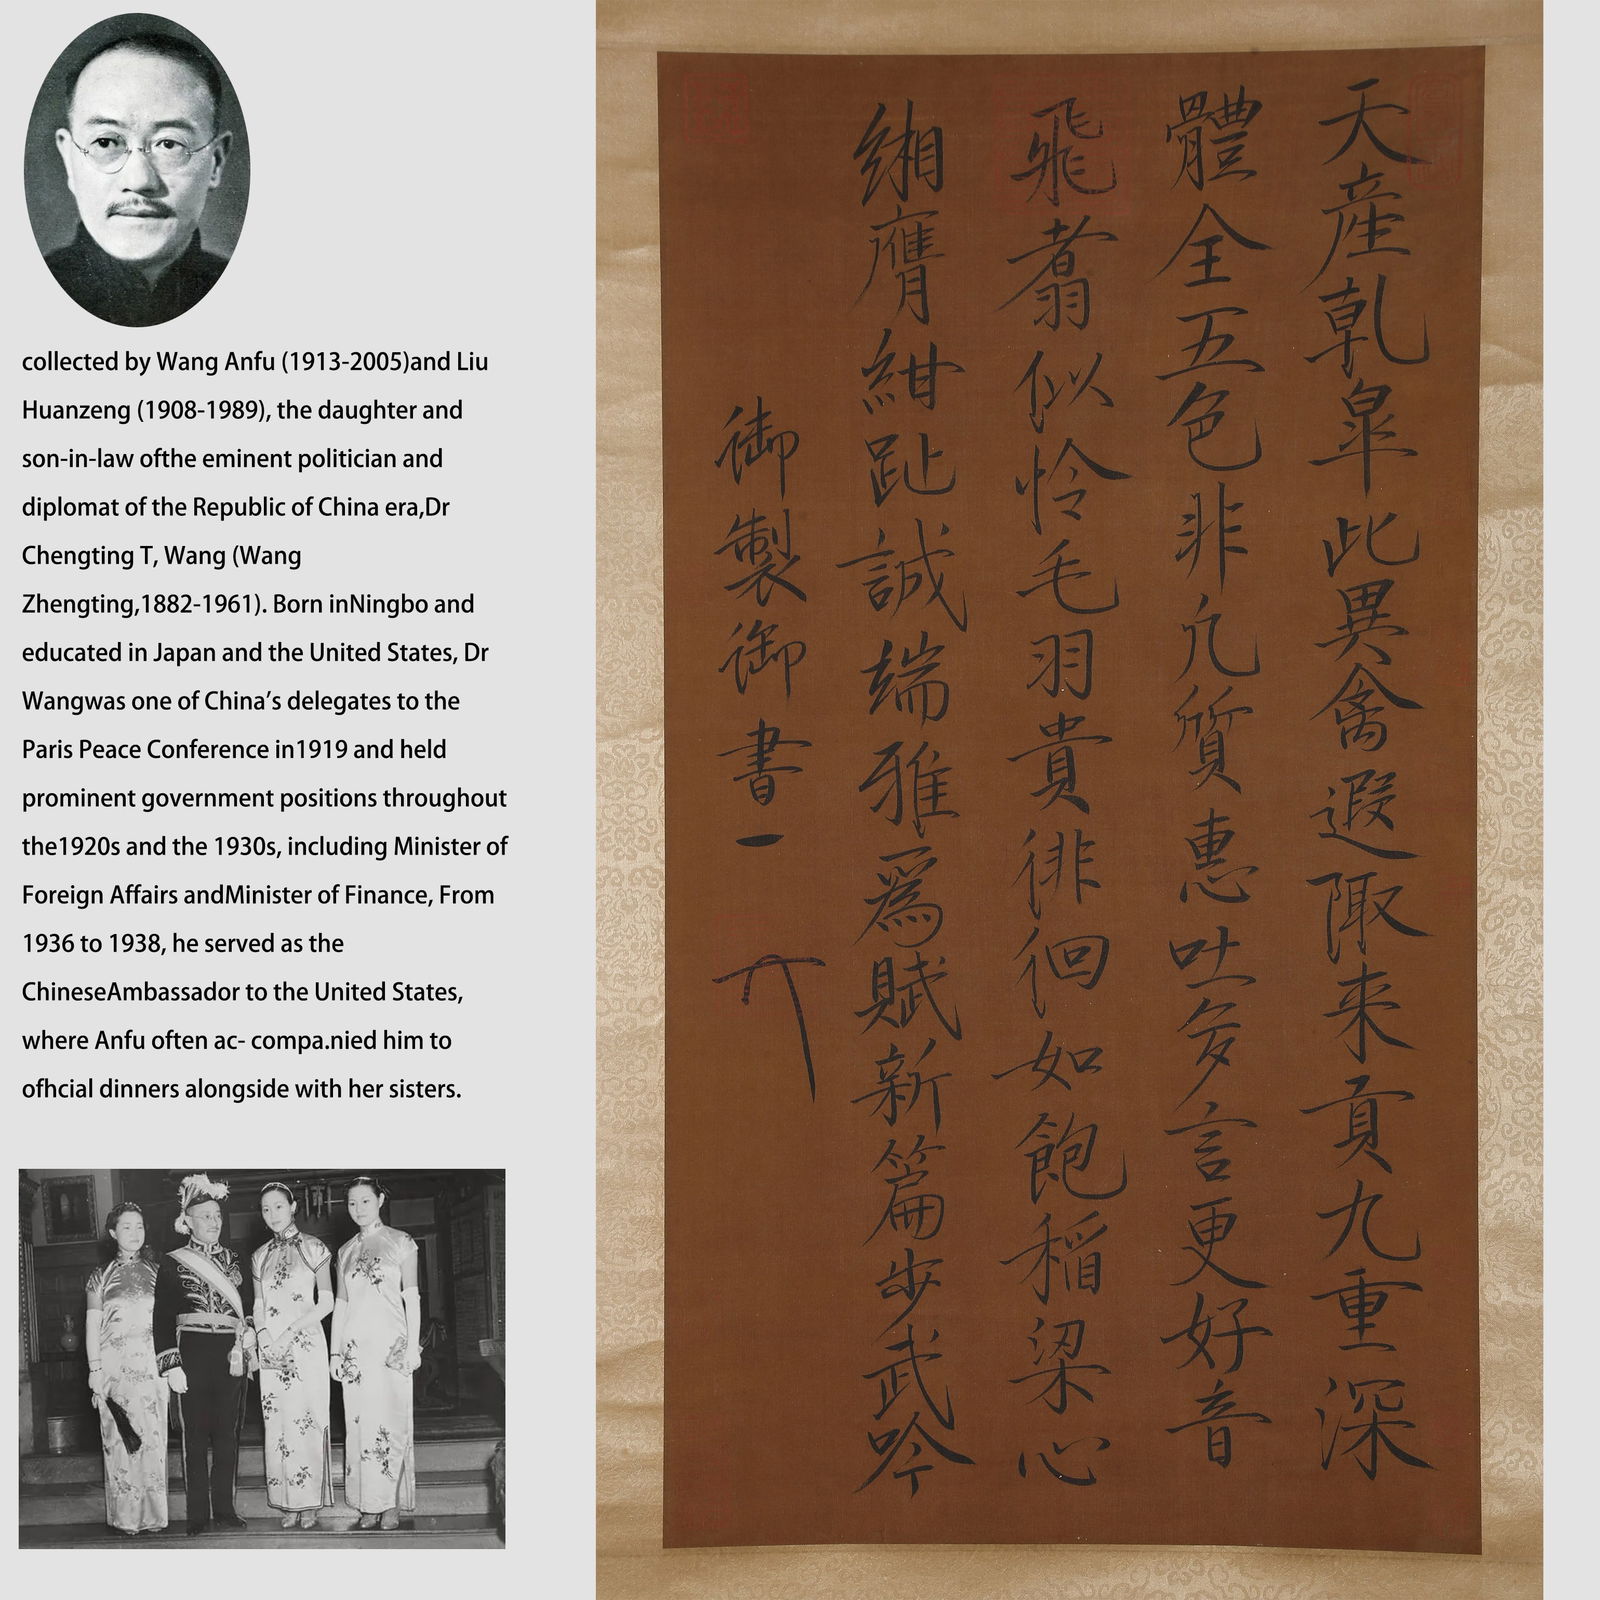 collected by Wang Anfu (1913-2005)and Liu
Huanzeng (1908-1989), the daughter and
son-in-law ofthe eminent politician and
diplomat of the Republic of China era,Dr
Chengting T, Wang (Wang
Zhengting,1882-1961). Born inNingbo and
educated in Japan and the United States, Dr
Wangwas one of China’s delegates to the
Paris Peace Conference in1919 and held
prominent government positions throughout
the1920s and the 1930s, including Minister of
Foreign Affairs andMinister of Finance, From
1936 to 1938, he served as the
ChineseAmbassador to the United States,
where Anfu often ac- compa.nied him to
ofhcial dinners alongside with her sisters.
天產乾皐此異禽遐陬来貢九重深
體全五色非凢質惠吐多言更好音
飛翥似怜毛羽貴徘徊如飽稻梁心
緗膺紺趾誠端雅爲賦新篇步武吟
御製御書